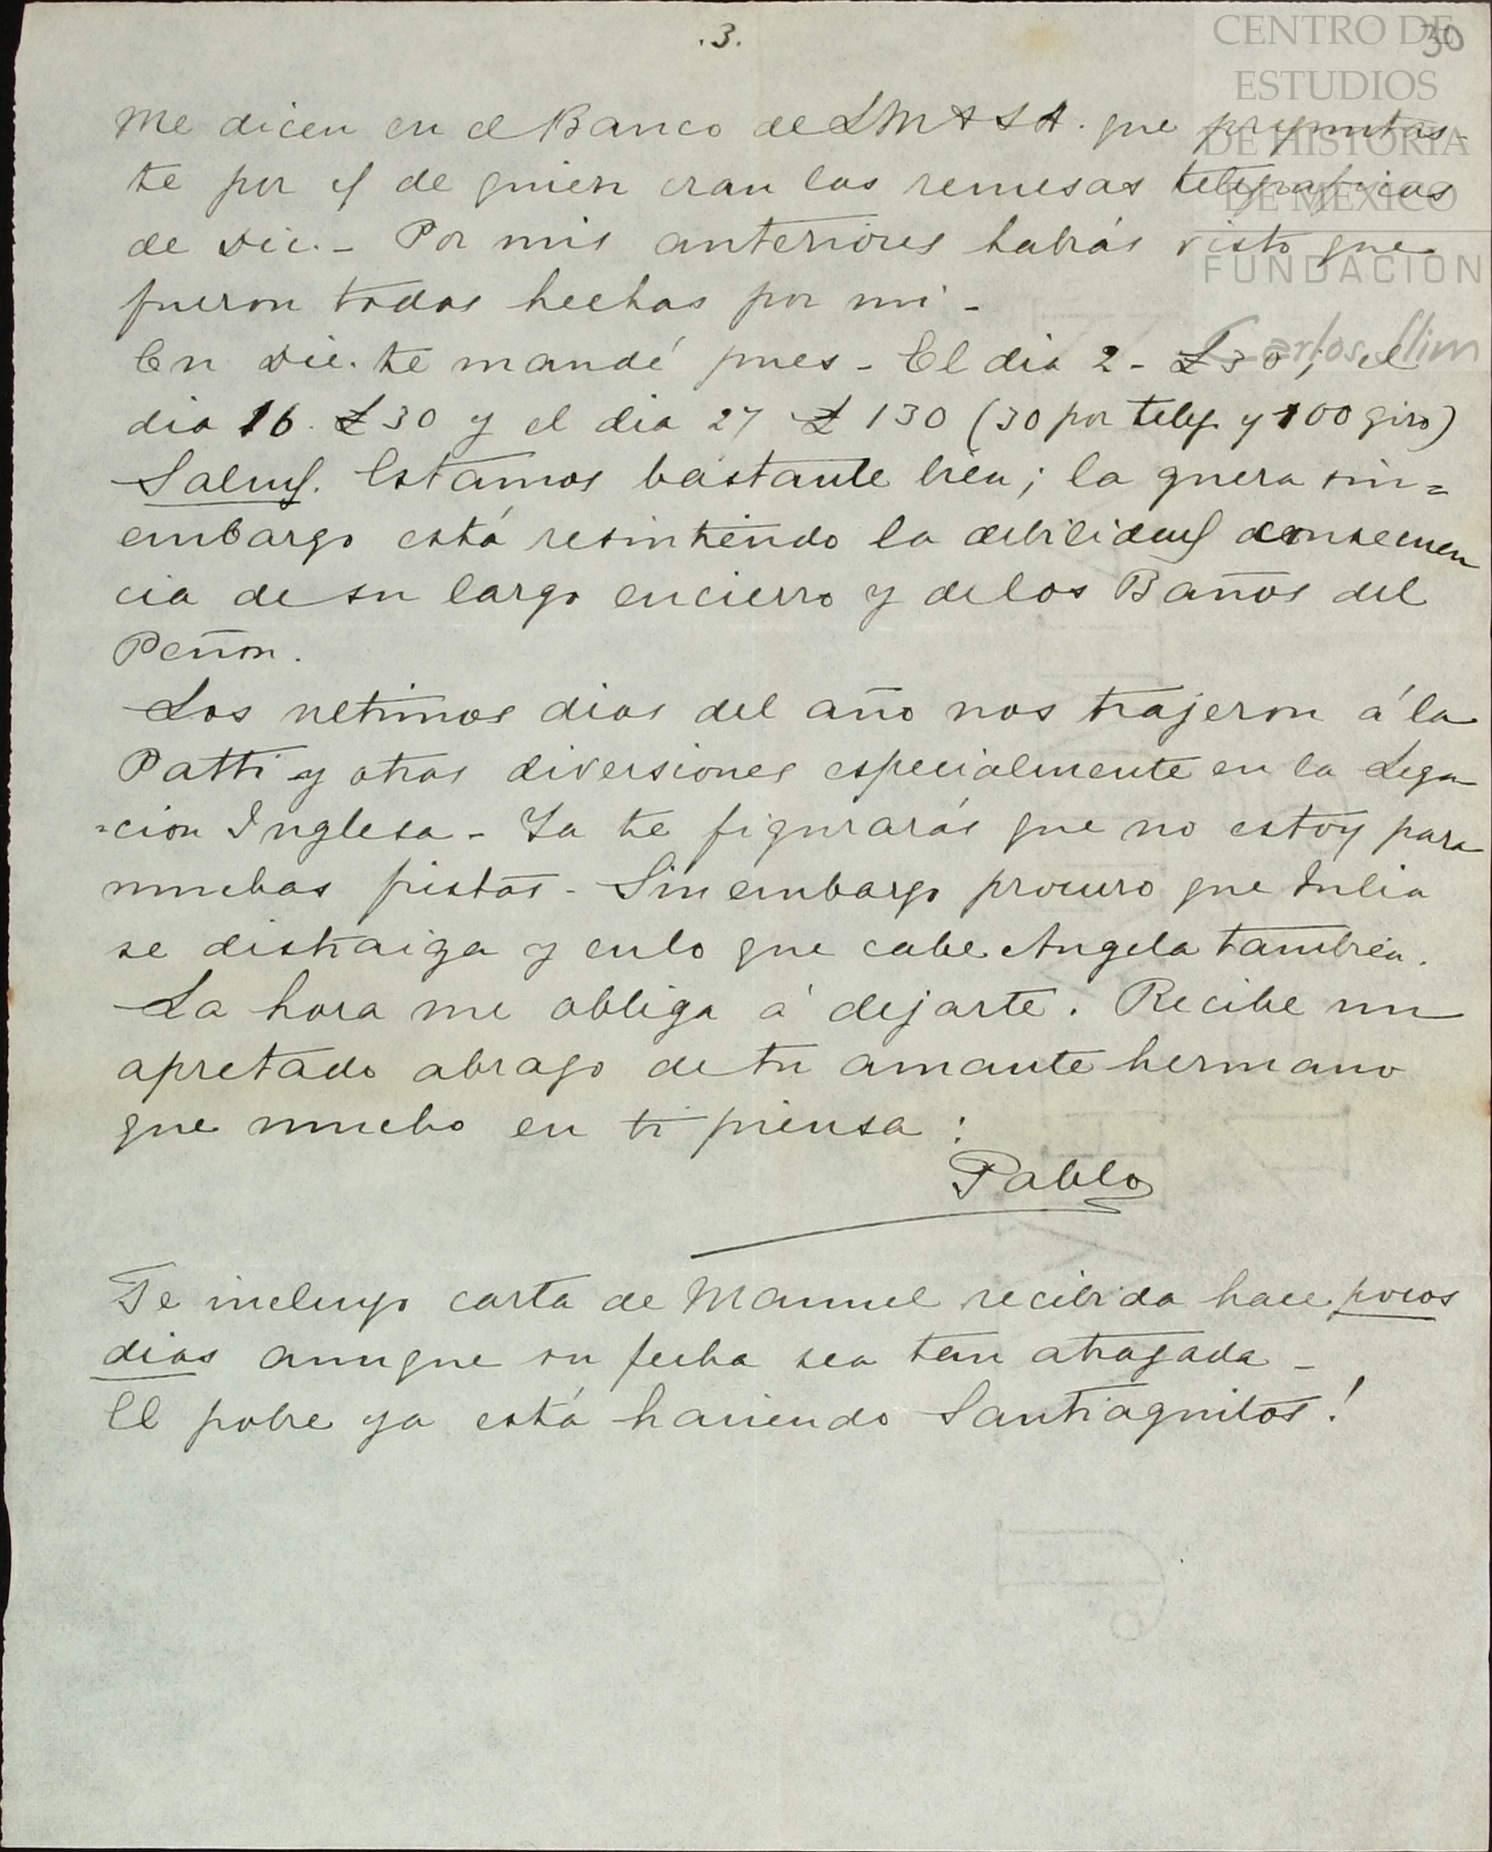 .3.
30
CENTRO DE
ESTUDIOS
DE HISTORIA
DE MEXICO
FUNDACION
Carlos Slim
Me dicen en el Banco de LM&SA. que preguntas-
te por y de quien eran las remesas telegraficas
de Dic. - Por mis anteriores habrás visto que
fueron todas hechas por mi -
En Dic. te mandé pues - El dia 2 - £30; el
dia 16. £30 y el dia 27 £ 130 (30 por teleg. y 100 giro)
Salud. Estamos bastante bien; la guera sin=
embargo está resintiendo la debilidad consecuen
cia de su largo encierro y de los Baños del
Peñon.
Los ultimos dias del año nos trajeron á la
Patti y otras diversiones especialmente en la Lega
=cion Inglesa - Ya te figurarás que no estoy para
muchas fiestas - Sin embargo procuro que Julia
se distraiga y en lo que cabe Angela tambien.
La hora me obliga á dejarte. Recibe un
apretado abrazo de tu amante hermano
que mucho en ti piensa:
Pablo
Te incluyo carta de Manuel recibida hace pocos
dias aunque su fecha sea tan atrazada -
El pobre ya está haciendo Santiaguitos!